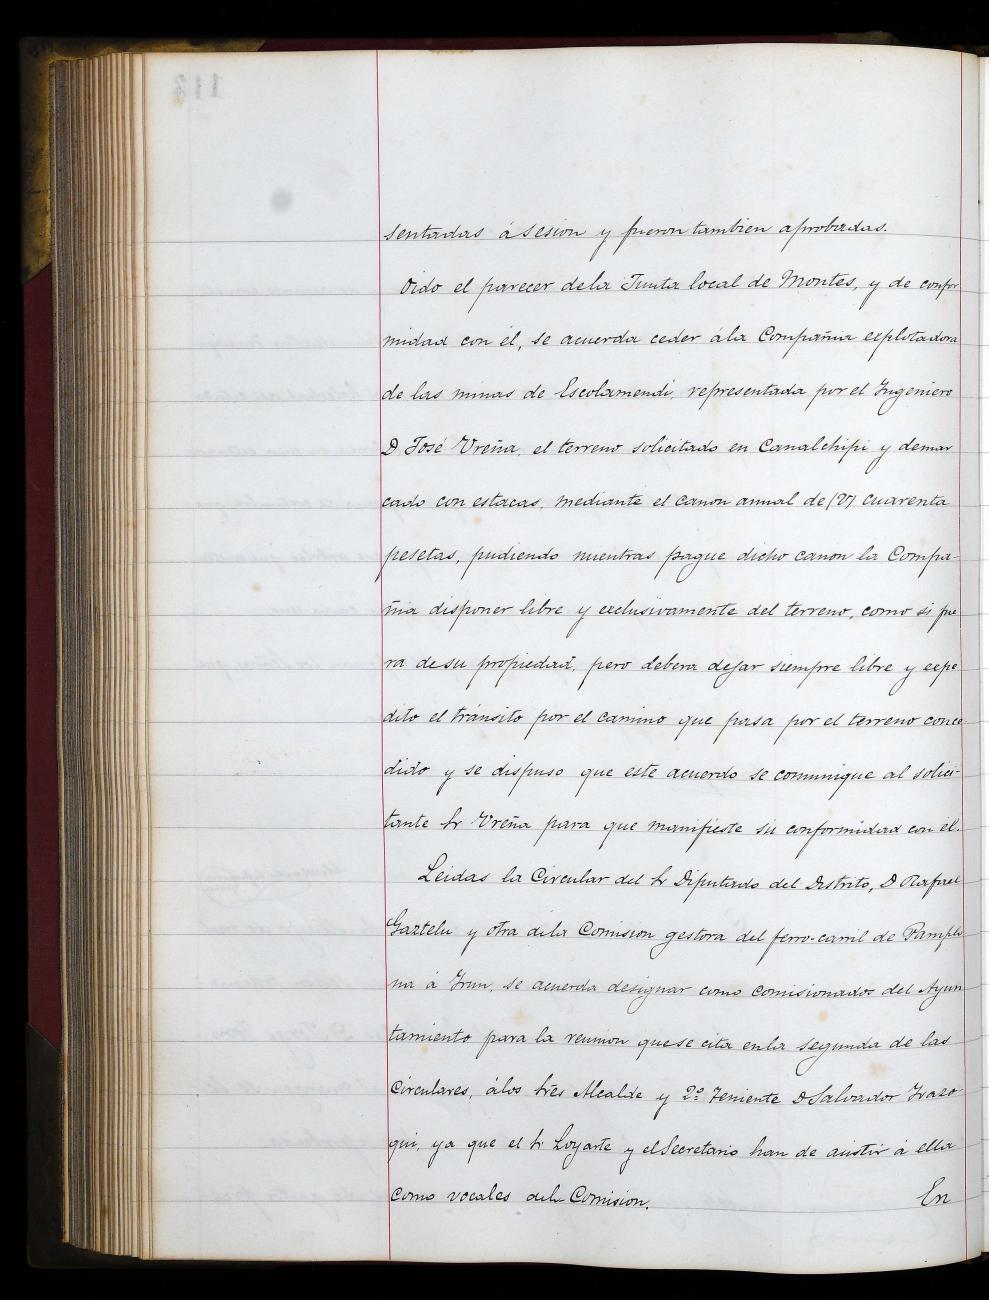 sentadas á sesion y fueron tambien aprobadas.
Oido el parecer dela Junta local de Montes, y de confor
midad con él, se acuerda ceder ála Compañia explotadora
de las minas de Escolamendi, representada por el Ingeniero
D José Ureña, el terreno solicitado en Canalchipi y demar
cado con estacas, mediante el canon annal de cuarenta
pesetas, pudiendo mientras pague dicho canon la Compa-
ñia disponer libre y exclusivamente del terreno, como si fue
ra de su propiedad, pero debera dejar siempre libre y expe
dito el tránsito por el camino que pasa por el terreno conce
dido y se dispuso que este acuerdo se comunique al solici-
tante Sr Ureña para que manifieste su conformidad con él.
Leidas la Circular del Sr Diputado del Distrito, D Rafael
Gaztelu y otra dela Comision gestora del ferro-carril de Pamplo
na á Irun, se acuerda designar como comisionados del Ayun
tamiento para la reunion que se cita en la segunda de las
Circulares, álos Sres Alcalde y 2º Teniente D Salvador Irazo
qui, ya que el Sr Loyarte y el Secretario han de asistir á ella
como vocales dela Comision. En